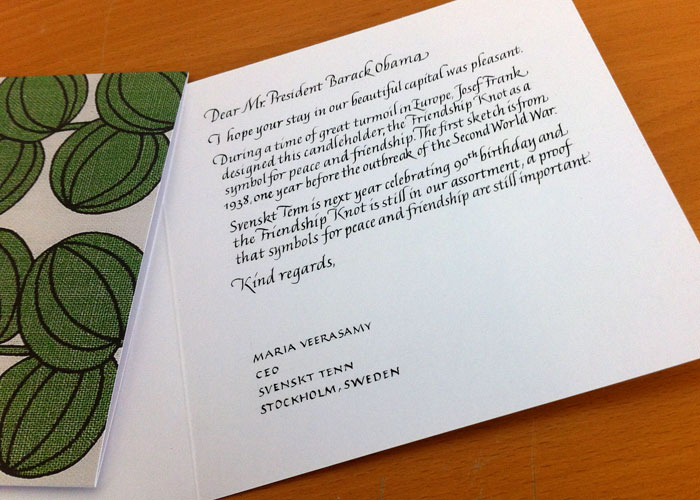 Dear Mr. President Barack Obama
I hope your stay in our beautiful capital was pleasant.
During a time of great turmoil in Europe, Josef Frank
designed this candleholder, the Friendship Knot as a
symbol for peace and friendship. The first sketch is from
1938, one year before the outbreak of the Second World War.
Svenskt Tenn is next year celebrating 90th birthday and
the Friendship Knot is still in our assortment, a proof
that symbols for peace and friendship are still important.
Kind regards,
MARIA VEERASAMY
CEO
SVENSKT TENN
STOCKHOLM, SWEDEN